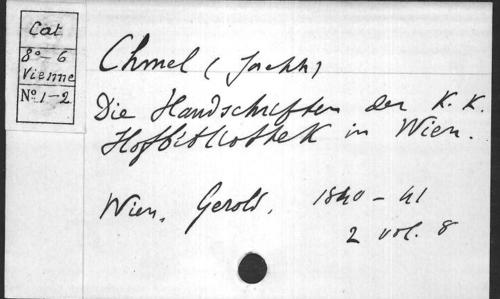 Cat
8° - 6
Vienne
N° 1-2
Chmel (
Die Handschriften der K. K.
Hofbibliothek in Wien.
Wien, Gerold, 1840 - 41
2 vol. 8